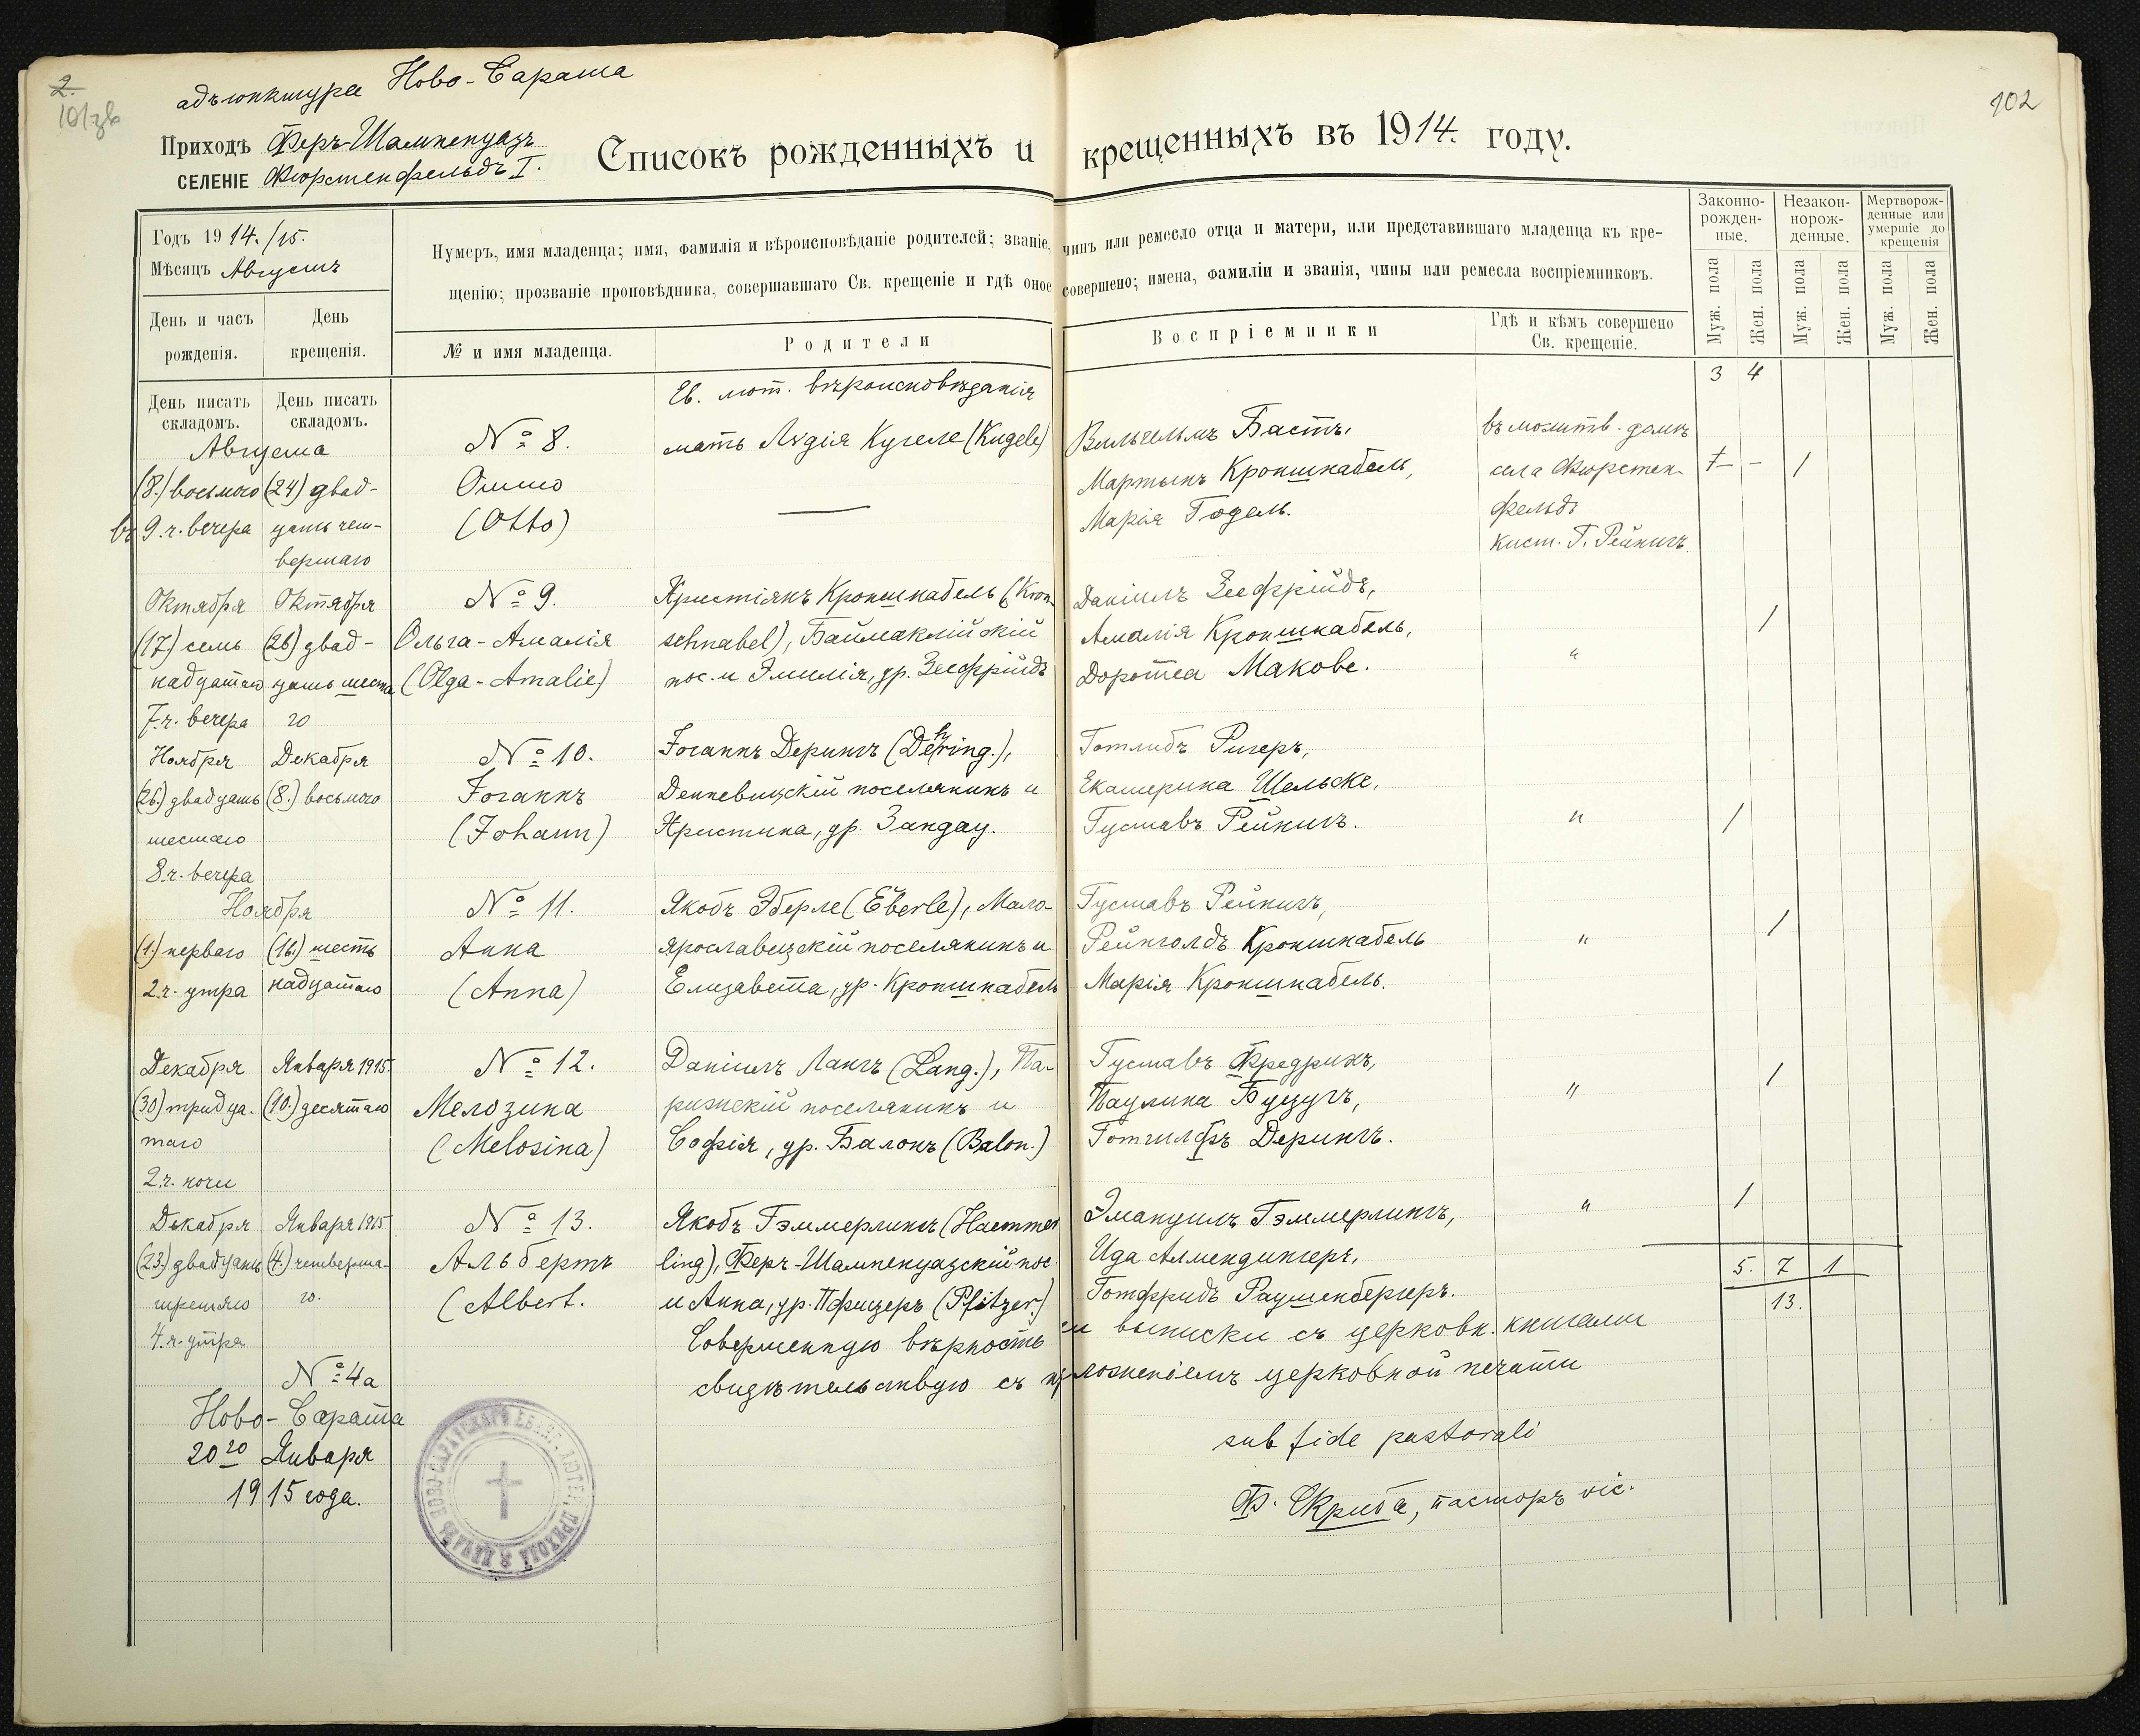 2.
101зв
102
адъюнктура Ново-Сарата
Приходъ Феръ-Шампенуазъ
СЕЛЕНІЕ Фюрстенфельдъ I.
Списокъ рожденныхъ и крещенныхъ въ 1914. году.
Годъ 1914./15.
Мѣсяцъ Августъ
Нумеръ, имя младенца; имя, фамилія и вѣроисповѣданіе родителей; званіе, чинъ или ремесло отца и матери, или представившаго младенца къ кре-
щенію; прозваніе проповѣдника, совершавшаго Св. крещеніе и гдѣ оное совершено; имена, фамиліи и званія, чины или ремесла воспріемниковъ.
Законно-
рожден-
ные.
Незакон-
норож-
денные.
Мертворож-
денные или
умершіе до
крещенія
Муж. пола
Жен. пола
Муж. пола
Жен. пола
Муж. пола
Жен. пола
День и часъ
рожденія.
День
крещенія.
№ и имя младенца.
Родители
Воспріемники
Гдѣ и кѣмъ совершено
Св. крещеніе.
День писать
складомъ.
День писать
складомъ.
3 4
Августа
(8.) восьмого
въ 9. ч. вечера
(24) двад-
цать чет-
вертаго
№ 8.
Отто
(Otto)
Ев. лют. вѣроисповѣданія
мать Лидія Кугеле (Kugele)
Вильгельмъ Бастъ,
Мартынъ Кроншнабель,
Марія Годель.
въ молитв. домѣ
села Фюрстен-
фельдъ
кист. Г. Рейнигъ
/
Октября
(17) семь
надцатаго
7. ч. вечера
Октября
(26) двад-
цать шеста
го
№ 9.
Ольга-Амалія
(Olga-Amalie)
Христіянъ Кроншнабель (Kron
schnabel), Баймаклійскій
пос. и Эмилія, ур. Зеефрійдъ
Даніилъ Зеефрійдъ,
Амалія Кроншнабель,
Доротеа Макове.
"
/
Ноября
(26.) двадцать
шестаго
8. ч. вечера
Декабря
(8.) восьмого
№ 10.
Іоганнъ
(Johann)
Іоганнъ Дерингъ (Dehring.),
Денневицскій поселянинъ и
Христина, ур. Зандау.
Готлибъ Ригеръ,
Екатерина Шельске,
Густавъ Рейнигъ.
"
/
Ноября
(1.) перваго
2. ч. утра
(16.) шесть
надцатаго
№ 11.
Анна
(Anna)
Якобъ Эберле (Eberle), Мало-
ярославецкій поселянинъ и
Елизавета, ур. Кроншнабель
Густавъ Рейнигъ,
Рейнголдъ Кроншнабель
Марія Кроншнабель.
"
/
Декабря
(30) тридца-
таго
2. ч. ночи
Января 1915.
(10.) десятаго
№ 12.
Мелозина
(Melosina)
Даніилъ Лангъ (Lang.), Па-
рижскій поселянинъ и
Софія, ур. Балонъ (Balon.)
Густавъ Фредрихъ,
Паулина Буцугъ,
Готгилфъ Дерингъ.
"
/
Декабря
(23.) двадцать
третяго
4. ч. утра
Января 1915
(4.) четверта-
го.
№ 13.
Альбертъ
(Albert.
Якобъ Гэммерлингъ (Haemmer
ling), Феръ-Шампенуазскій пос.
и Анна, ур. Пфицеръ (Pfitzer.)
Эмануилъ Гэммерлингъ,
Ида Алмендингеръ,
Готфридъ Раушенбергеръ.
"
/
5. 7 1
13.
Совершенную вѣрность сей выписки съ церковн. книгами
свидѣтельствую съ приложеніемъ церковной печати
№ 4а
Ново-Сарата
20го Января
1915 года.
sub fide pastorali
Ф. Скриба, пасторъ vic.